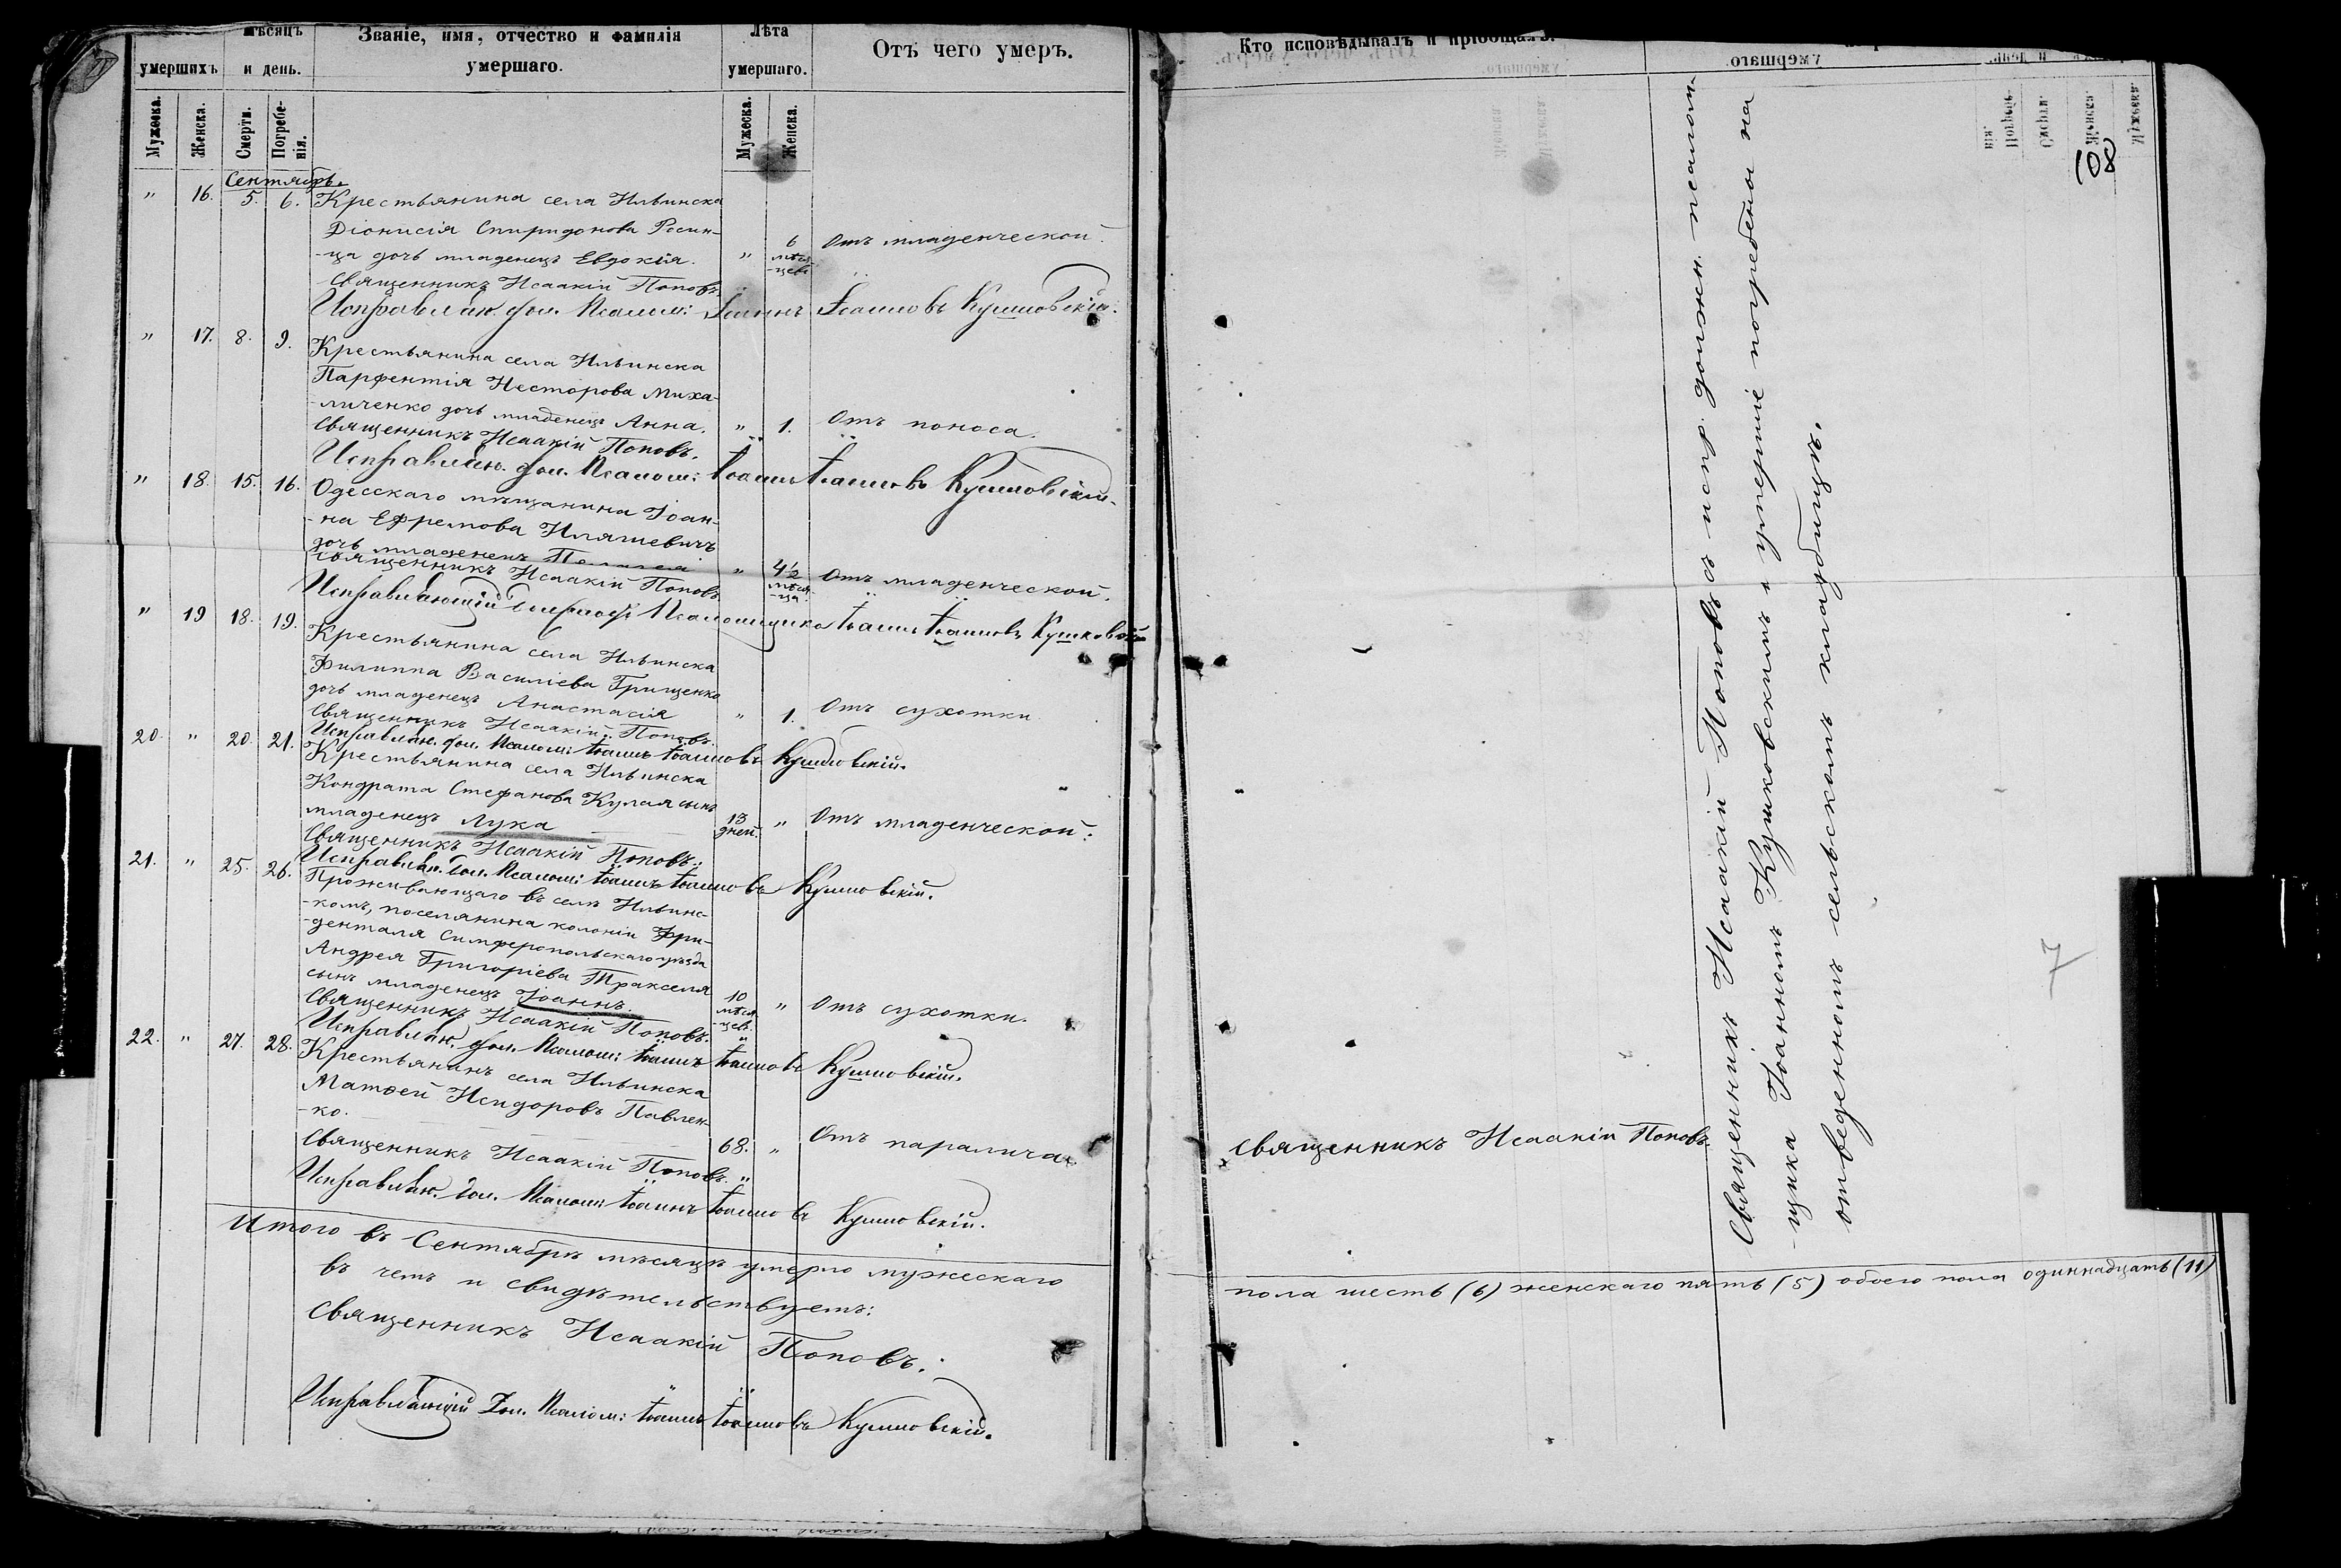 мѣсяцъ
Званіе, имя, отчество и фамилія
Лѣта
умершихъ
и день.
умершаго.
умершаго.
Отъ чего умеръ.
Мужеска.
Женска.
Смерти.
Погребе-
нія.
Мужеска.
Женска.
Сентябрь.
" 16. 5. 6. Крестьянина села Ильинска
Діонисія Спиридонова
-ца дочь младенецъ Евдокія. " 6 мѣся-
-цевъ Отъ младенческой.
Священникъ Исаакій Поповъ.
Исправляю. дол. Псалом: Іоаннъ Іоанновъ Кушковскій.
" 17. 8. 9. Крестьянина села Ильинска
Парфентія Несторова Миха-
-личенко дочь младенецъ Анна. " 1. Отъ поноса.
Священникъ Исаакій Поповъ.
Исправляю. дол. Псалом: Іоаннъ Іоанновъ Кушковскій.
" 18. 15. 16. Одесскаго мѣщанина Іоан-
-на Ефремова Иляшевичъ
дочь младенецъ " 4½
мѣся-
-ца Отъ младенческой.
Священникъ Исаакій Поповъ
Исправляющій должность Псаломщика Іоаннъ Іоанновъ Кушковскій
" 19 18. 19. Крестьянина села Ильинска
Филиппа Василіева Грищенко
дочь младенецъ Анастасія " 1. Отъ сухотки
Священникъ Исаакій Поповъ.
Исправляю. дол. Псалом: Іоаннъ Іоанновъ Кушковскій.
20. " 20. 21. Крестьянина села Ильинска
Кондрата Стефанова Кулая сынъ
младенецъ Лука 13
дней. " Отъ младенческой.
Священникъ Исаакій Поповъ.
Исправляю. дол. Псалом: Іоаннъ Іоанновъ Кушковскій.
21. " 25. 26. Проживающаго въ селѣ Ильинс-
-комъ, поселянина колоніи Фри-
-денталя Симферопольскаго уѣзда
Андрея Григоріева Тракселя
сынъ младенецъ Іоаннъ. 10
мѣся-
-цевъ. " Отъ сухотки.
Священникъ Исаакій Поповъ.
Исправляю. дол. Псалом: Іоаннъ Іоанновъ Кушковскій.
22. " 27. 28. Крестьянинъ села Ильинска
Матѳей Исидоровъ Павлен-
-ко. 68. " Отъ паралича.
Священникъ Исаакій Поповъ.
Исправляю. дол. Псалом: Іоаннъ Іоанновъ Кушковскій.
Итого въ Сентябрѣ мѣсяцѣ умерло мужескаго
въ чемъ и свидѣтельствуетъ:
Священникъ Исаакій Поповъ.
Исправляющій дол. Псалом: Іоаннъ Іоанновъ Кушковскій.
Кто исповѣдывалъ и пріобщалъ.
108
Священникъ Исаакій Поповъ.
Священникъ Исаакій Поповъ съ испр. должн. псалом-
-щика Іоанномъ Кушковскимъ и умершіе погребены на
отведенномъ сельскомъ кладбищѣ.
7
пола шесть (6) женскаго пять (5) обоего пола одиннадцать (11)